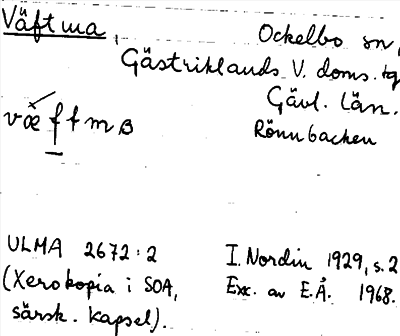 Väftma, Ockelbo sn,
Gästriklands V. doms. tg
Gävl. län.
væftmв Rönnbacken
ULMA 2672:2 I. Nordin 1929, s. 2
(Xerokopia i SOA, Exc. av E.Å. 1968.
särsk. kapsel).